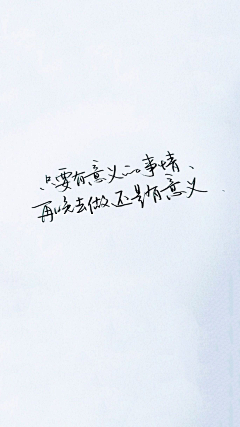 只要有意义的事情、
再晚去做还是有意义.